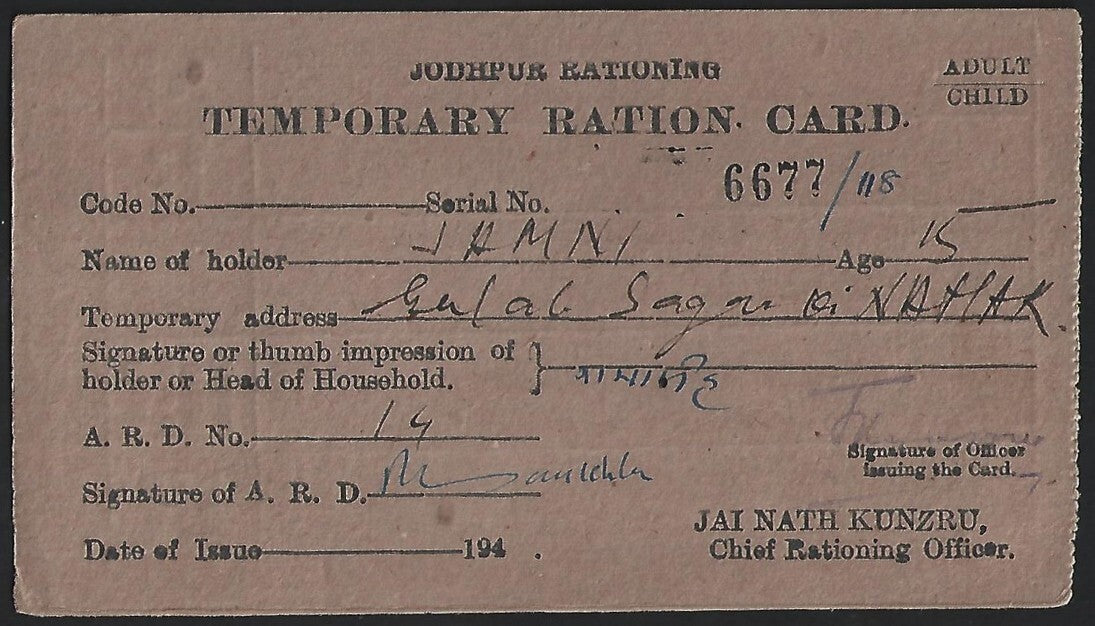 JODHPUR RATIONING
ADULT
CHILD
TEMPORARY RATION CARD.
6677/118
Code No. Serial No.
Name of holder JAMNI Age 15
Temporary address Gulab Sagar ki
Signature or thumb impression of
holder or Head of Household.
A. R. D. No. 14
Signature of A. R. D.
Signature of Officer
issuing the Card.
JAI NATH KUNZRU,
Date of Issue 194 .
Chief Rationing Officer.